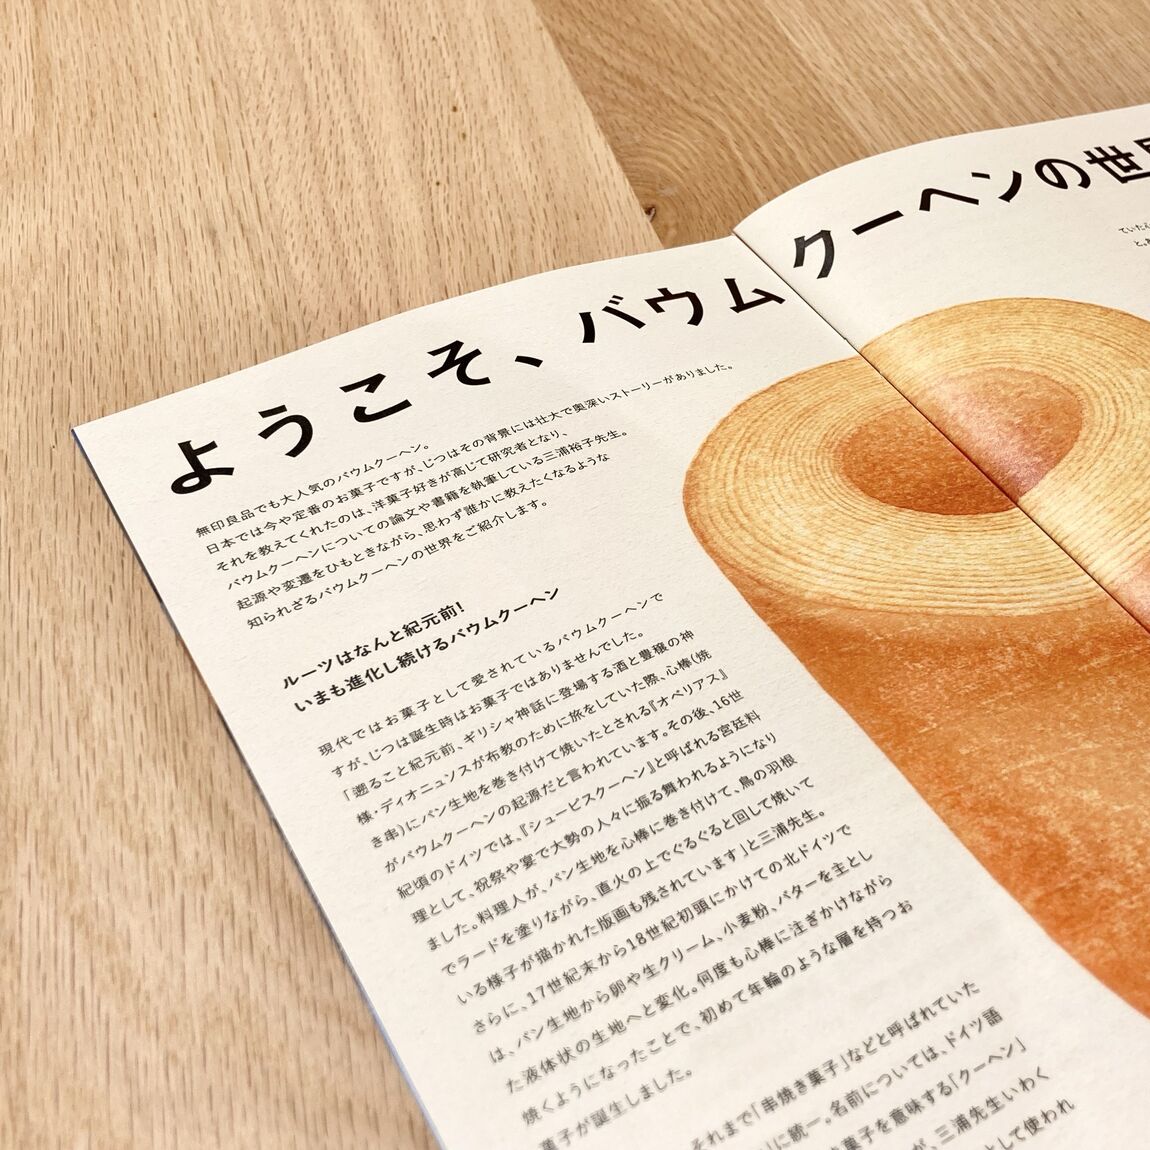 ようこそ、バウムクーヘンの世
無印良品でも大人気のバウムクーヘン。
日本では今や定番のお菓子ですが、じつはその背景には壮大で奥深いストーリーがありました。
それを教えてくれたのは、洋菓子好きが高じて研究者となり、
バウムクーヘンについての論文や書籍を執筆している三浦裕子先生。
起源や変遷をひもときながら、思わず誰かに教えたくなるような
知られざるバウムクーヘンの世界をご紹介します。
ルーツはなんと紀元前!
いまも進化し続けるバウムクーヘン
現代ではお菓子として愛されているバウムクーヘンで
すが、じつは誕生時はお菓子ではありませんでした。
「遡ること紀元前、ギリシャ神話に登場する酒と豊穣の神
様・ディオニュソスが布教のために旅をしていた際、心棒(焼
き串)にパン生地を巻き付けて焼いたとされる『オベリアス』
がバウムクーヘンの起源だと言われています。その後、16世
紀頃のドイツでは、『シュービスクーヘン』と呼ばれる宮廷料
理として、祝祭や宴で大勢の人々に振る舞われるようになり
ました。料理人が、パン生地を心棒に巻き付けて、鳥の羽根
でラードを塗りながら、直火の上でぐるぐると回して焼いて
いる様子が描かれた版画も残されています」と三浦先生。
さらに、17世紀末から18世紀初頭にかけての北ドイツで
は、パン生地から卵や生クリーム、小麦粉、バターを主とし
た液体状の生地へと変化。何度も心棒に注ぎかけながら
焼くようになったことで、初めて年輪のような層を持つお
菓子が誕生しました。
それまで「串焼き菓子」などと呼ばれていた
に統一。名前については、ドイツ語
菓子を意味する「クーヘン」
が、三浦先生いわく
として使われ
ていた